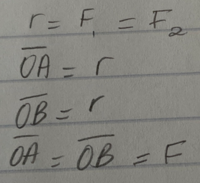 r = F₁ = F₂
O̅A̅ = r
O̅B̅ = r
O̅A̅ = O̅B̅ = F